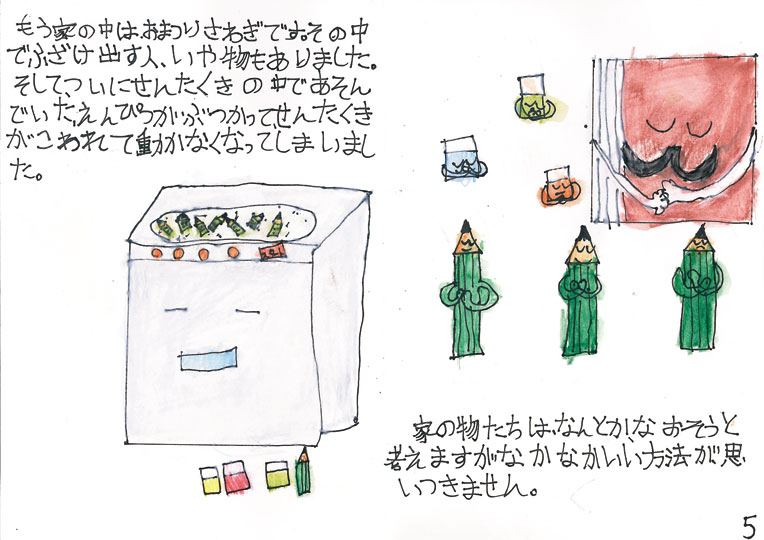 もう家の中は、おまつりさわぎです。その中
でふざけ出す人、いや物もありました。
そして、ついにせんたくきの中であそん
でいたえんぴつがぶつかってせんたくき
がこわれて動かなくなってしまいまし
た。
家の物たちは、なんとか、なおそうと
考えますがなかなかいい方法が思
いつきません。
5